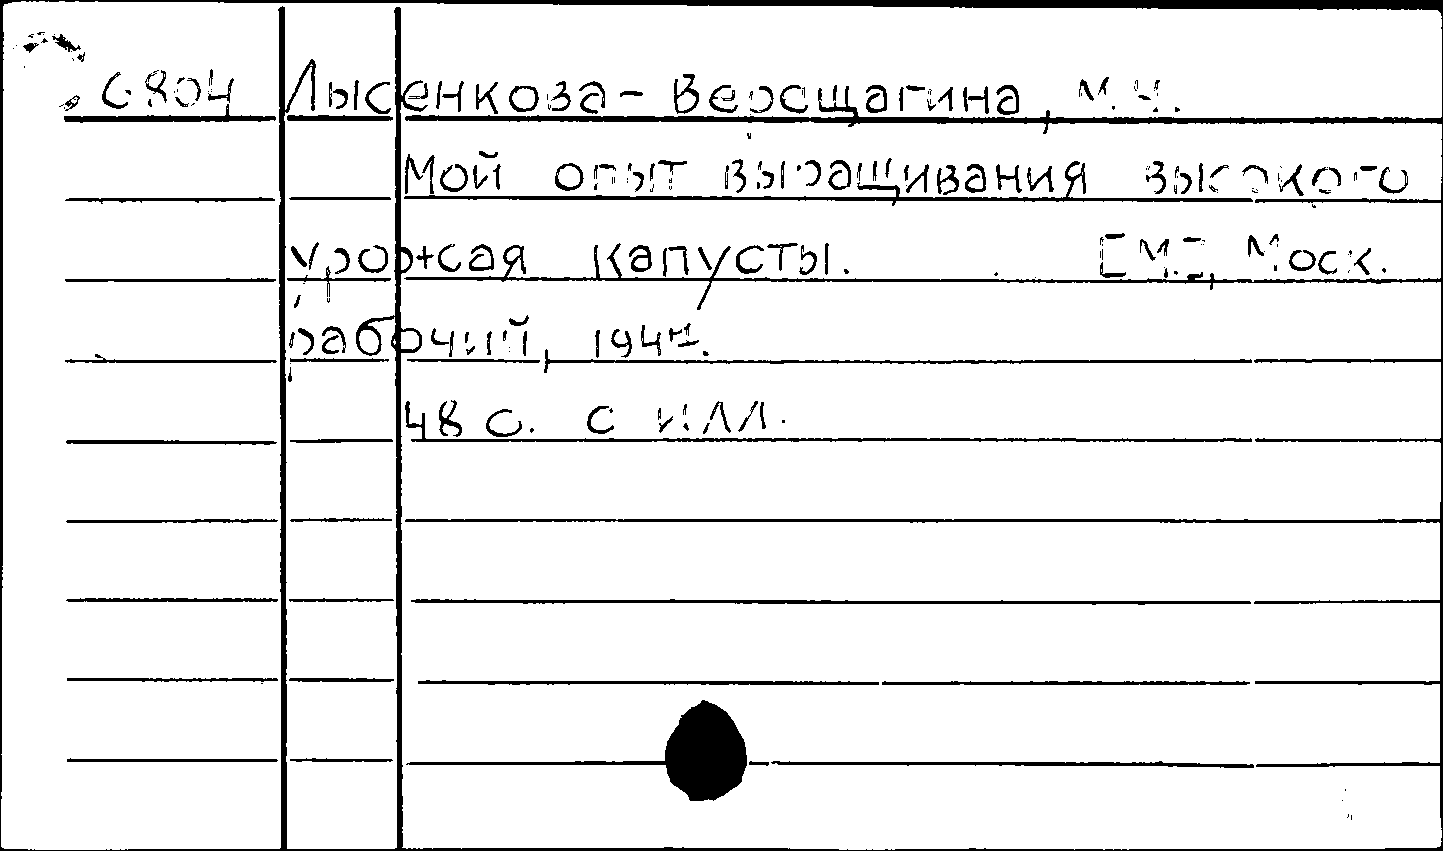 6804 Лысенкова-Верещагина, М.Ч.
Мой опыт выращивания высокого
урожая капусты. [М.], Моск.
рабочий,
48 с. с илл.